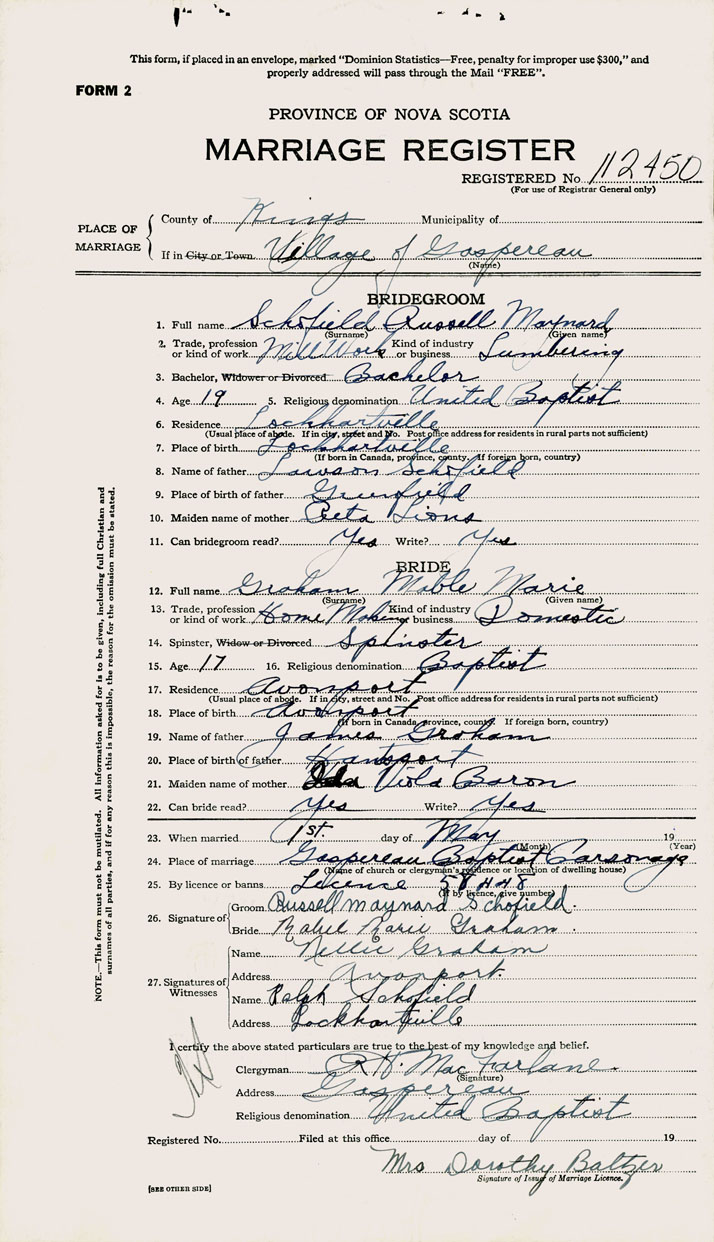 This form, if placed in an envelope, marked “Dominion Statistics—Free, penalty for improper use $300,” and
properly addressed will pass through the Mail “FREE”.
FORM 2
PROVINCE OF NOVA SCOTIA
MARRIAGE REGISTER
REGISTERED No. 112450
(For use of Registrar General only)
PLACE OF MARRIAGE
County of Kings Municipality of
If in City or Town Village of Gaspereau
(Name)
BRIDEGROOM
1. Full name Schofield Russell Maynard
(Surname) (Given name)
2. Trade, profession or kind of work Mill Work Kind of industry or business Lumbering
3. Bachelor, Widower or Divorced Bachelor
4. Age 19 5. Religious denomination United Baptist
6. Residence Lockhartville
(Usual place of abode. If in city, street and No. Post office address for residents in rural parts not sufficient)
7. Place of birth Lockhartville
(If born in Canada, province, county. If foreign born, country)
8. Name of father Lawson Schofield
9. Place of birth of father Greenfield
10. Maiden name of mother Reta Lions
11. Can bridegroom read? Yes Write? Yes
BRIDE
12. Full name Graham Mable Marie
(Surname) (Given name)
13. Trade, profession or kind of work Home Maker Kind of industry or business Domestic
14. Spinster, Widow or Divorced Spinster
15. Age 17 16. Religious denomination Baptist
17. Residence Avonport
(Usual place of abode. If in city, street and No. Post office address for residents in rural parts not sufficient)
18. Place of birth Avonport
(If born in Canada, province, county. If foreign born, country)
19. Name of father James Graham
20. Place of birth of father Hantsport
21. Maiden name of mother Viola Baron
22. Can bride read? Yes Write? Yes
23. When married 1st. day of May 19
(Month) (Year)
24. Place of marriage Gaspereau Baptist Parsonage
(Name of church or clergyman's residence or location of dwelling house)
25. By licence or banns Licence 58448
(If by licence, give number)
26. Signature of
Groom Russell Maynard Schofield.
Bride Mabel Marie Graham.
27. Signatures of Witnesses
Name Nellie Graham
Address Avonport.
Name Ralph Schofield
Address Lockhartville
I certify the above stated particulars are true to the best of my knowledge and belief.
Clergyman R. H. MacFarlane.
(Signature)
Address Gaspereau
Religious denomination United Baptist
Registered No. Filed at this office day of 19
Mrs Dorothy Baltzer
Signature of Issuer of Marriage Licence.
[SEE OTHER SIDE]
NOTE.—This form must not be mutilated. All information asked for is to be given, including full Christian and
surnames of all parties, and if for any reason this is impossible, the reason for the omission must be stated.